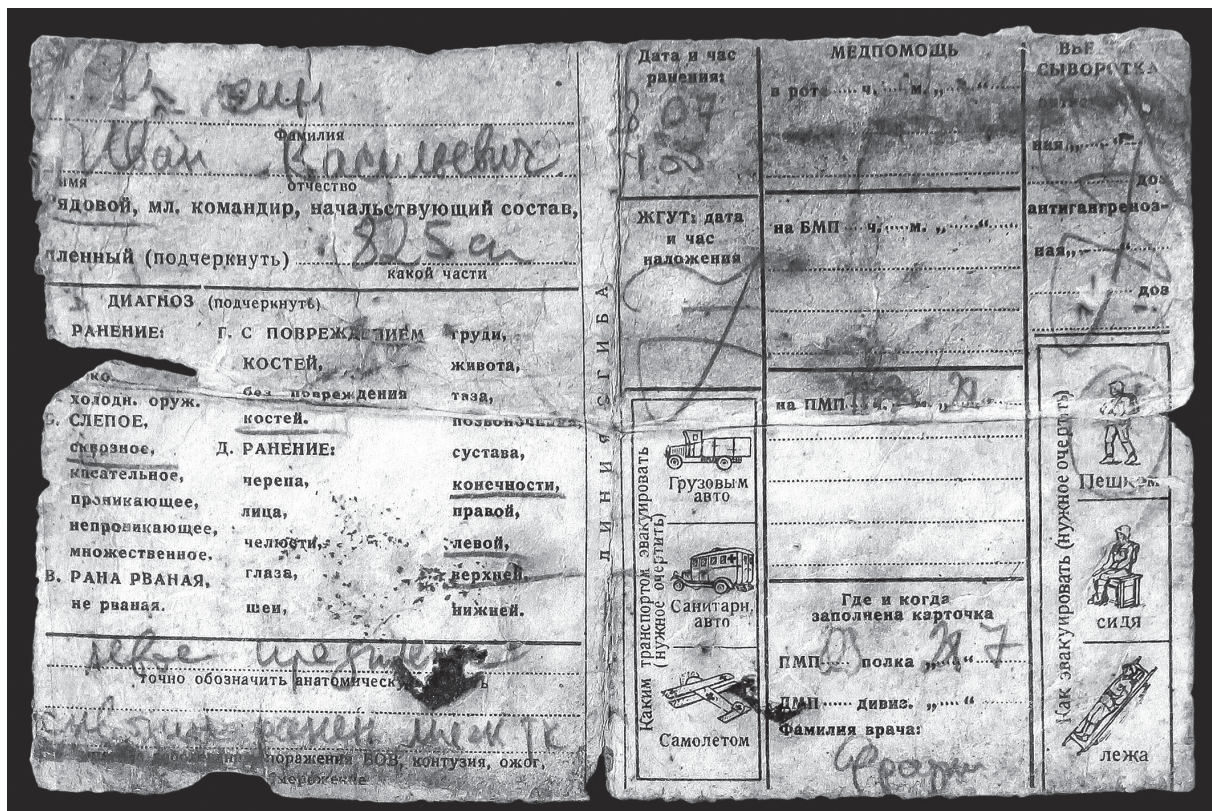 Фамилия
Иван Васильевич
имя отчество
рядовой, мл. командир, начальствующий состав,
пленный (подчеркнуть) 825 сп
какой части
ДИАГНОЗ (подчеркнуть)
РАНЕНИЕ:
холодн. оруж.
СЛЕПОЕ,
сквозное,
касательное,
проникающее,
непроникающее,
множественное.
В. РАНА РВАНАЯ,
не рваная.
Г. С ПОВРЕЖДЕНИЕМ
КОСТЕЙ,
без повреждения
костей.
Д. РАНЕНИЕ:
черепа,
лица,
челюсти,
глаза,
шеи,
груди,
живота,
таза,
позвоночника,
сустава,
конечности,
правой,
левой,
верхней,
нижней.
левое предплечье
точно обозначить анатомическую
ранен
поражения БОВ, контузия, ожог,
ЛИНИЯ СГИБА
Дата и час
ранения:
07
ЖГУТ: дата
и час
наложения
Каким транспортом эвакуировать
(нужное очертить)
Грузовым
авто
Санитарн.
авто
Самолетом
МЕДПОМОЩЬ
в роте ч. м. „ “
на БМП ч. м. „ “
на ПМП ч. м. „ “
Где и когда
заполнена карточка
ПМП полка „ “ 7
ДМП дивиз. „ “
Фамилия врача:
СЫВОРОТКА
доз
антигангреноз-
ная „ “
доз
Как эвакуировать (нужное очертить)
Пешком
сидя
лежа